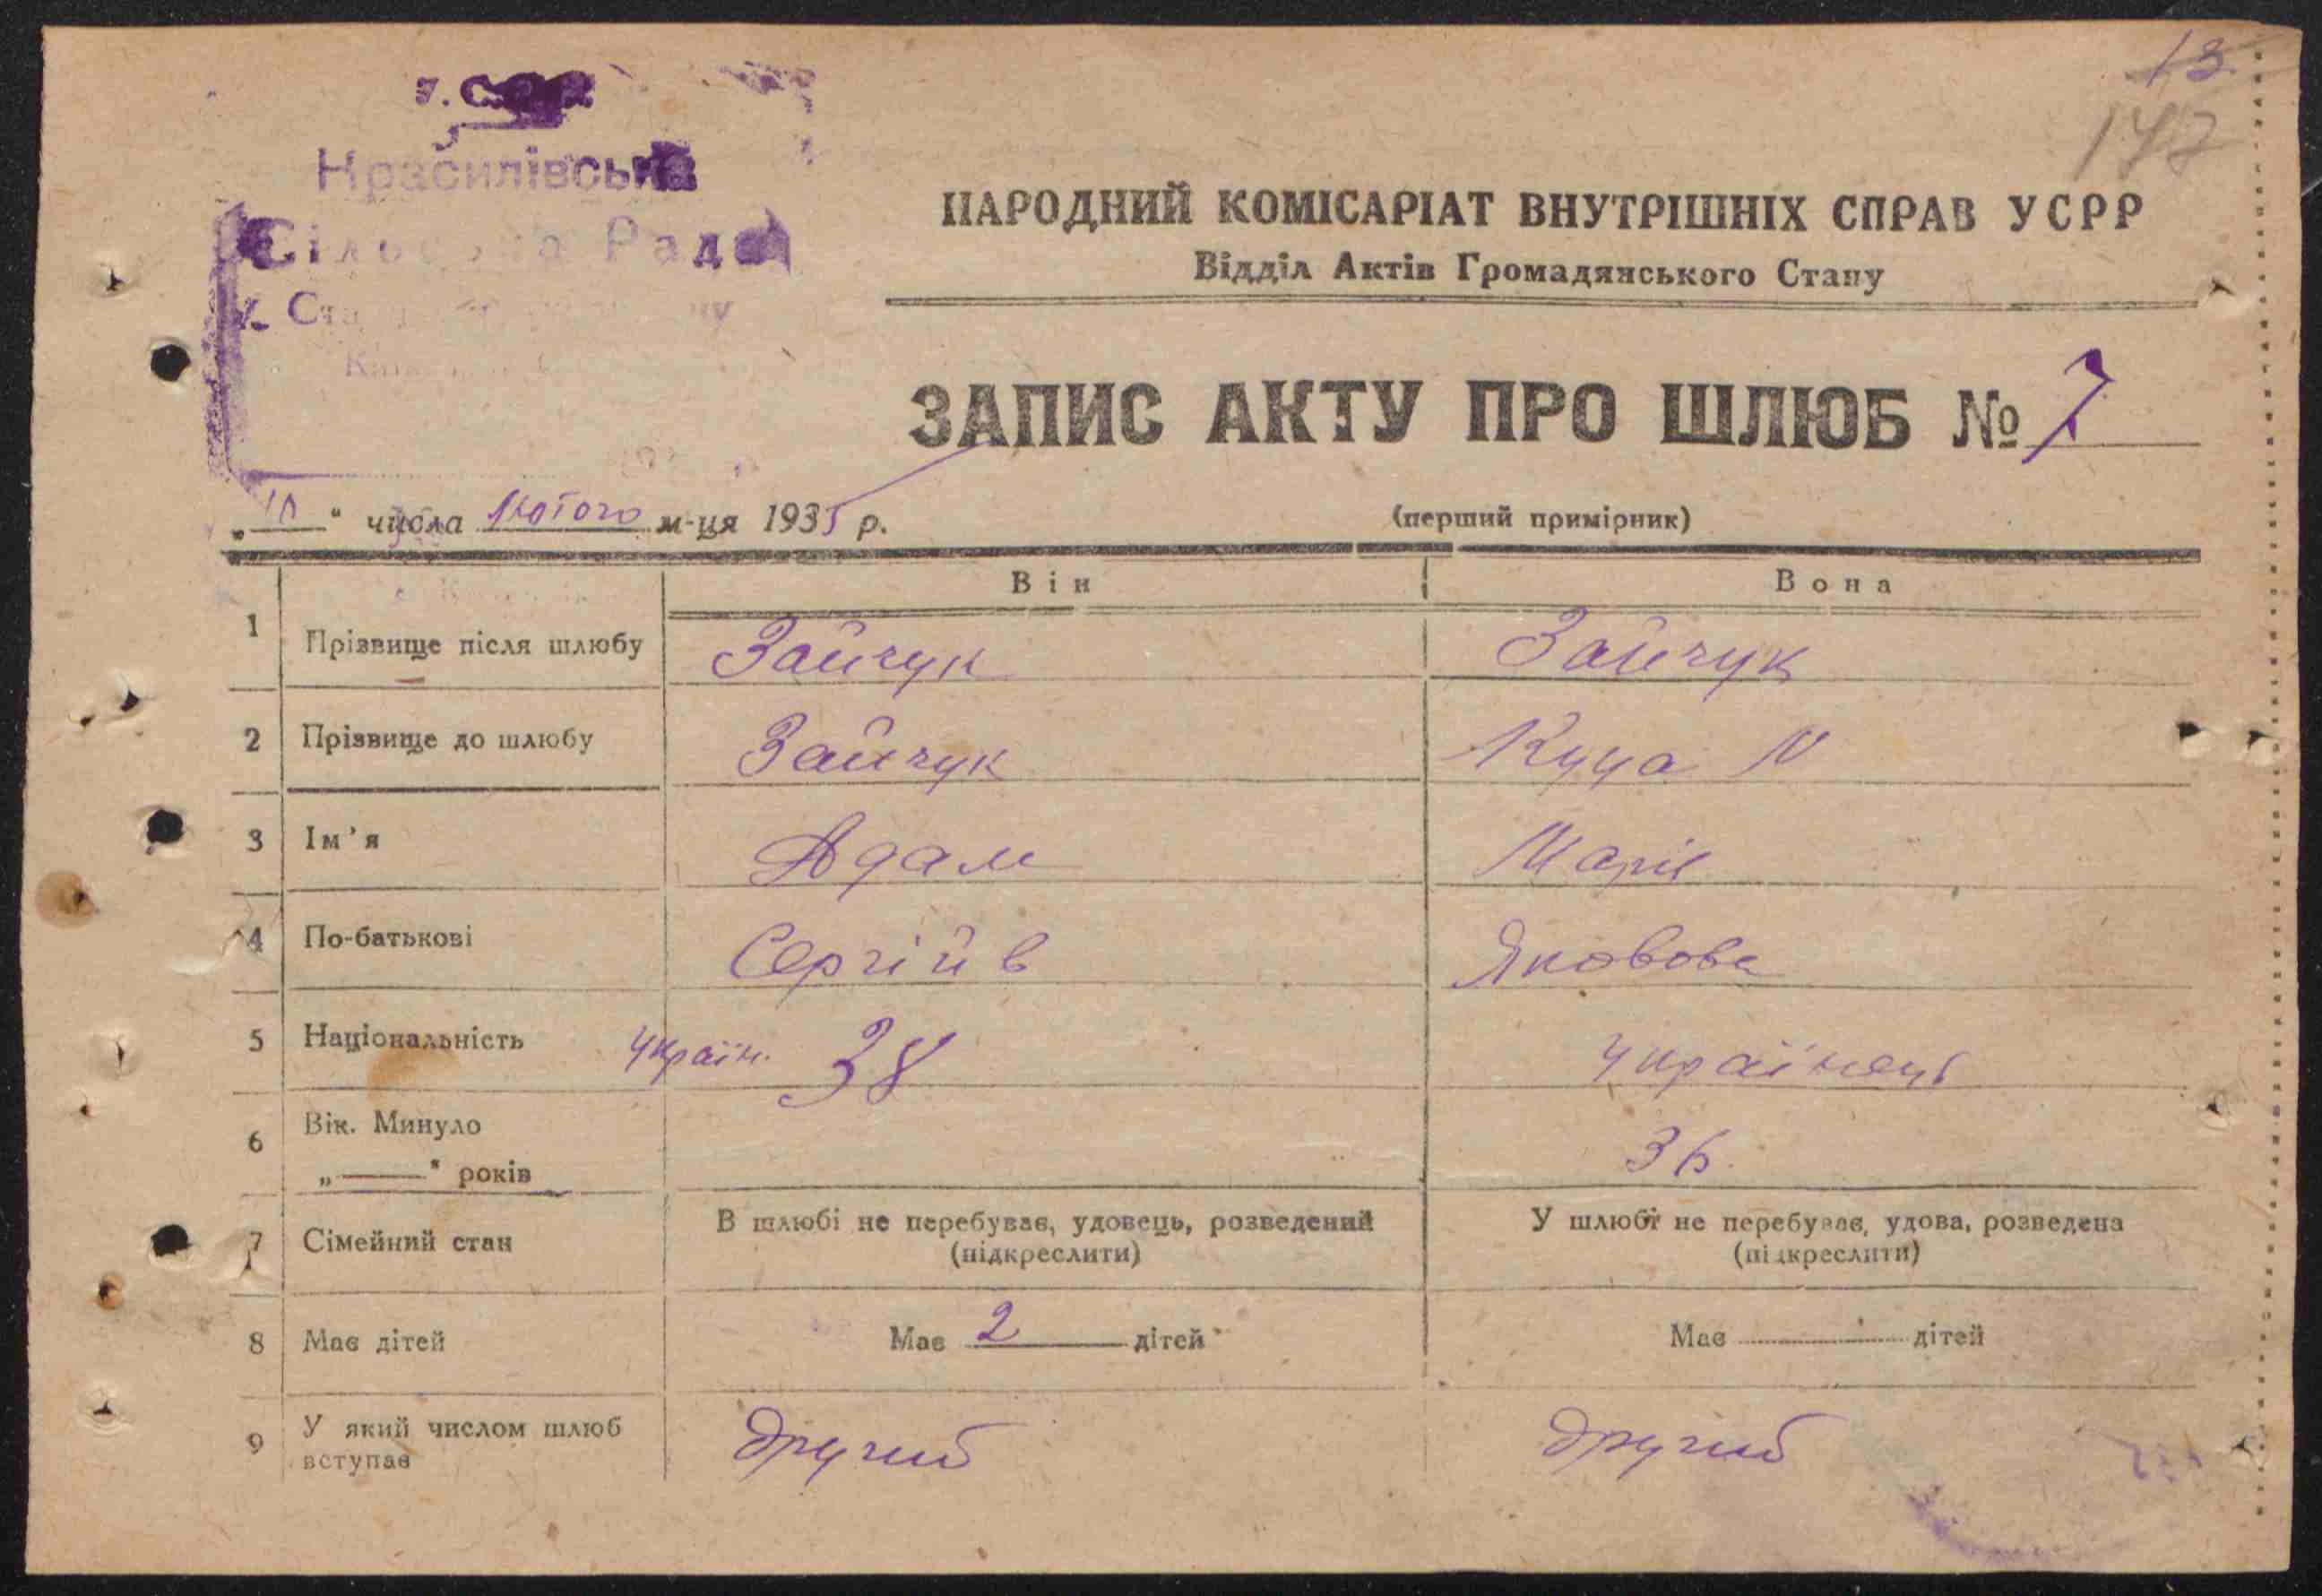 13.
147
Красилівська
Сільська Рада
НАРОДНИЙ КОМІСАРІАТ ВНУТРІШНІХ СПРАВ УСРР
Відділ Актів Громадянського Стану
ЗАПИС АКТУ ПРО ШЛЮБ № 7
„10“ числа Лютого м-ця 1935 р.
(перший примірник)
Він Вона
1 Прізвище після шлюбу Зайчук Зайчук
2 Прізвище до шлюбу Зайчук Куца
3 Ім’я Адам Марія
4 По-батькові Сергійв Яковова
5 Національність україн. 38 українець
6 Вік. Минуло
„ “ років 36.
7 Сімейний стан В шлюбі не перебуває, удовець, розведений У шлюбі не перебуває, удова, розведена
(підкреслити) (підкреслити)
8 Має дітей Має 2 дітей Має дітей
9 У який числом шлюб
вступає другий другий